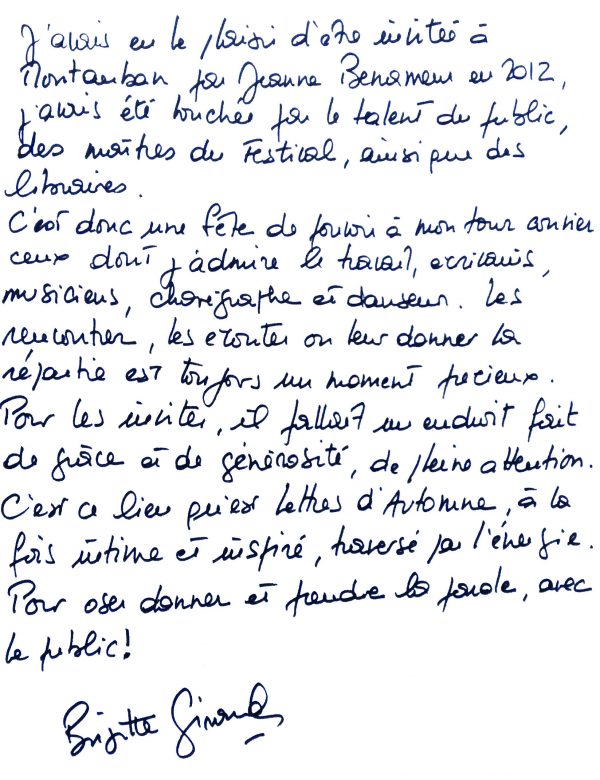 J'avais eu le plaisir d'être invitée à
Montauban par Jeanne Benameur en 2012,
j'avais été touchée par le talent du public,
des maîtres du Festival, ainsi que des
libraires.
C'est donc une fête de pouvoir à mon tour convier
ceux dont j'admire le travail, écrivains,
musiciens, chorégraphe et danseur. Les
rencontrer, les écouter ou leur donner la
répartie est toujors un moment précieux.
Pour les inviter, il fallait un endroit fait
de grâce et de générosité, de pleine attention.
C'est ce lieu qu'est Lettres d'Automne, à la
fois intime et inspiré, traversé par l'énergie.
Pour oser donner et prendre la parole, avec
le public!
Brigitte Giraud